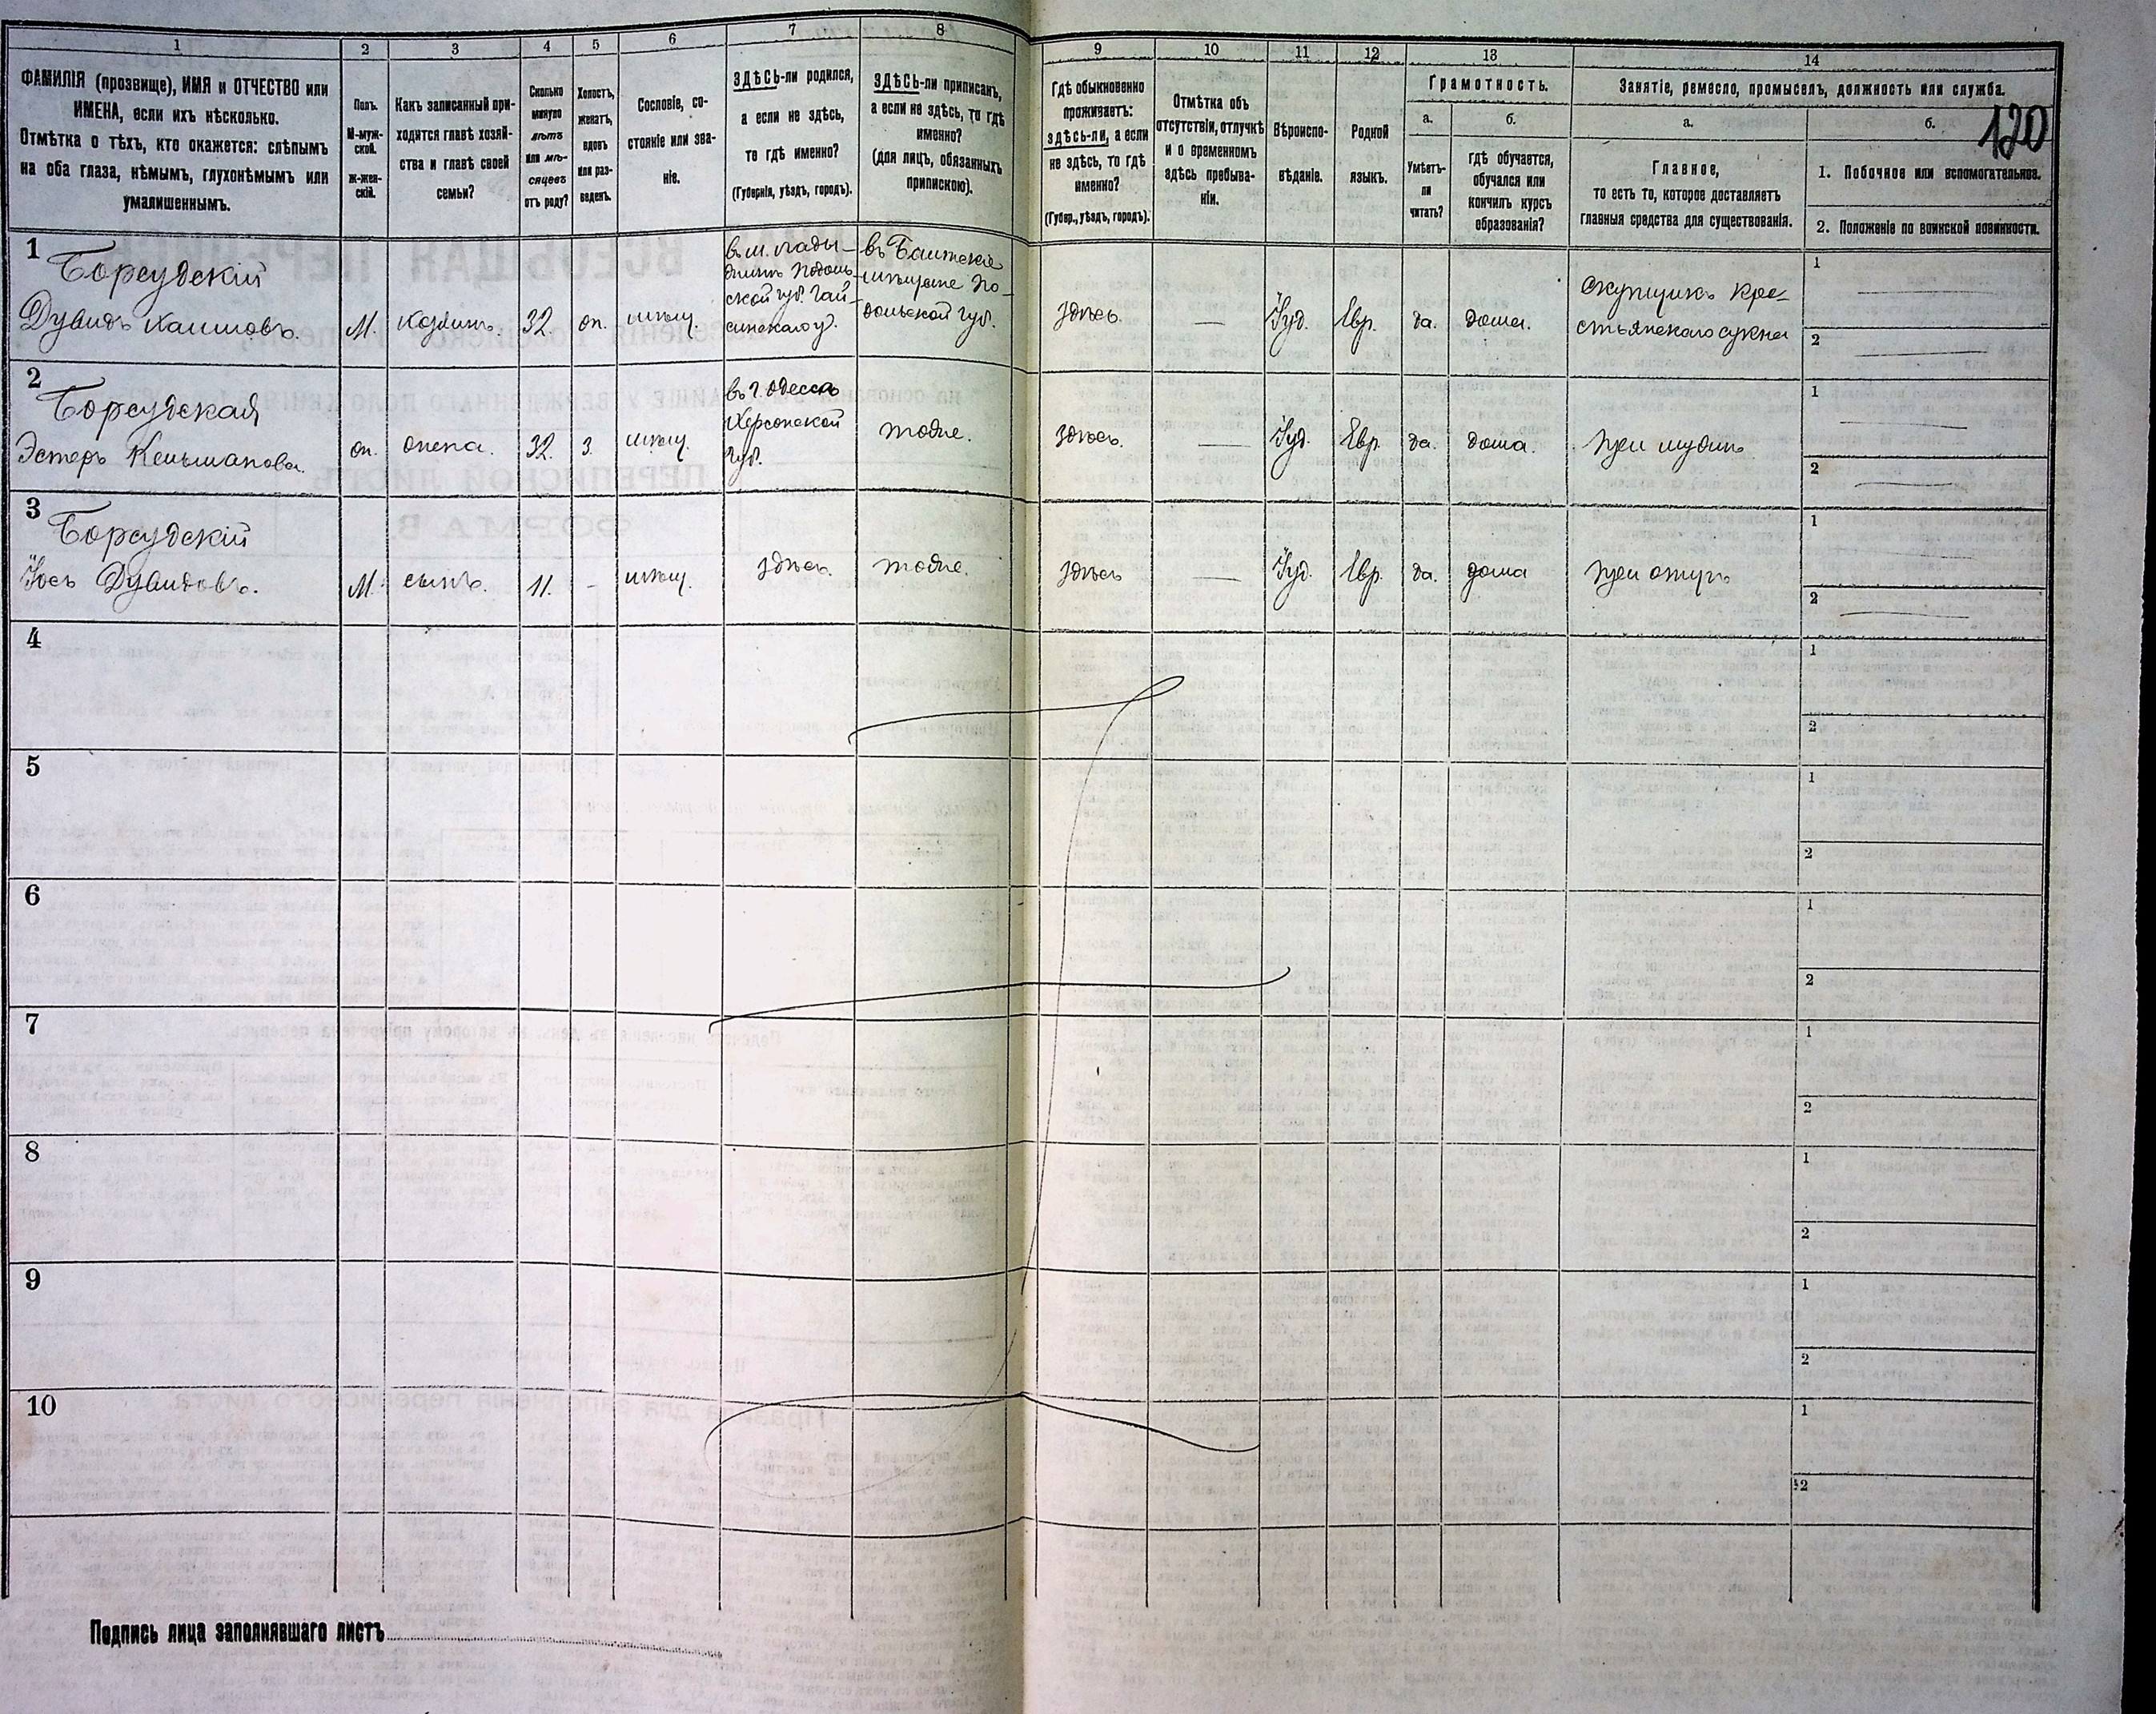 1 2 3 4 5 6 7 8 9 10 11 12 13 14
ФАМИЛІЯ (прозвище), ИМЯ и ОТЧЕСТВО или
ИМЕНА, если ихъ нѣсколько.
Отмѣтка о тѣхъ, кто окажется: слѣпымъ
на оба глаза, нѣмымъ, глухонѣмымъ или
умалишеннымъ.
Полъ.
М-муж-
ской.
ж-жен-
скій.
Какъ записанный при-
ходится главѣ хозяй-
ства и главѣ своей
семьи?
Сколько
минуло
лѣтъ
или мѣ-
сяцевъ
отъ роду?
Холостъ,
женатъ,
вдовъ
или раз-
веденъ.
Сословіе, со-
стояніе или зва-
ніе.
ЗДѢСЬ-ли родился,
а если не здѣсь,
то гдѣ именно?
(Губернія, уѣздъ, городъ).
ЗДѢСЬ-ли приписанъ,
а если не здѣсь, то гдѣ
именно?
(для лицъ, обязанныхъ
припискою).
Гдѣ обыкновенно
проживаетъ:
здѣсь-ли, а если
не здѣсь, то гдѣ
именно?
(Губер., уѣздъ, городъ).
Отмѣтка объ
отсутствіи, отлучкѣ
и о временномъ
здѣсь пребыва-
ніи.
Вѣроиспо-
вѣданіе.
Родной
языкъ.
Грамотность.
а.
Умѣетъ-
ли
читать?
б.
гдѣ обучается,
обучался или
кончилъ курсъ
образованія?
Занятіе, ремесло, промыселъ, должность или служба.
120
а.
Главное,
то есть то, которое доставляетъ
главныя средства для существованія.
б.
1. Побочное или вспомогательное.
2. Положеніе по воинской повинности.
1
Борсудскій
Дувидъ Хаимовъ.
М.
хозяинъ.
32
мѣщ.
ской губ. Гай-
синскаго у.
въ Балтскіе
мѣщане По-
дольской губ.
здѣсь.
—
Іуд.
Евр.
да.
дома.
скупщикъ кре-
стьянскаго сукна
1
2
2
Борсудская
Эстеръ
32.
з.
мѣщ.
въ г. Одесса
Херсонской
губ.
тоже.
здѣсь.
—
Іуд.
Евр.
да.
дома.
при мужѣ
1
2
3
Борсудскій
Іось Дувидовъ.
М.
сынъ.
11.
-
мѣщ.
здѣсь.
тоже.
здѣсь
—
Іуд.
Евр.
да.
дома
при отцѣ
1
2
4
1
2
5
1
2
6
1
2
7
1
2
8
1
2
9
1
2
10
1
2
Подпись лица заполнявшаго листъ